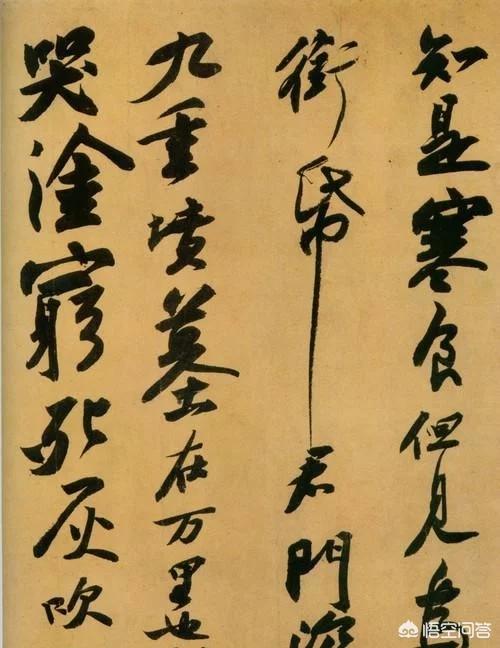 知是寒食但見烏
銜帋君門深
九重墳墓在万里也
哭塗窮死灰吹
悟空问答